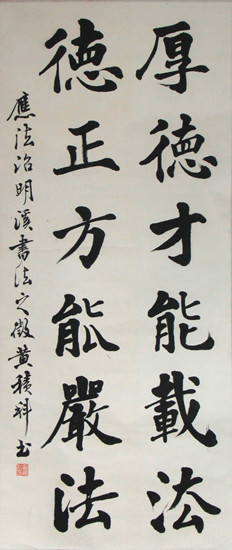 厚德才能載法
德正方能嚴法
應法治明溪書法之徵黄積科书